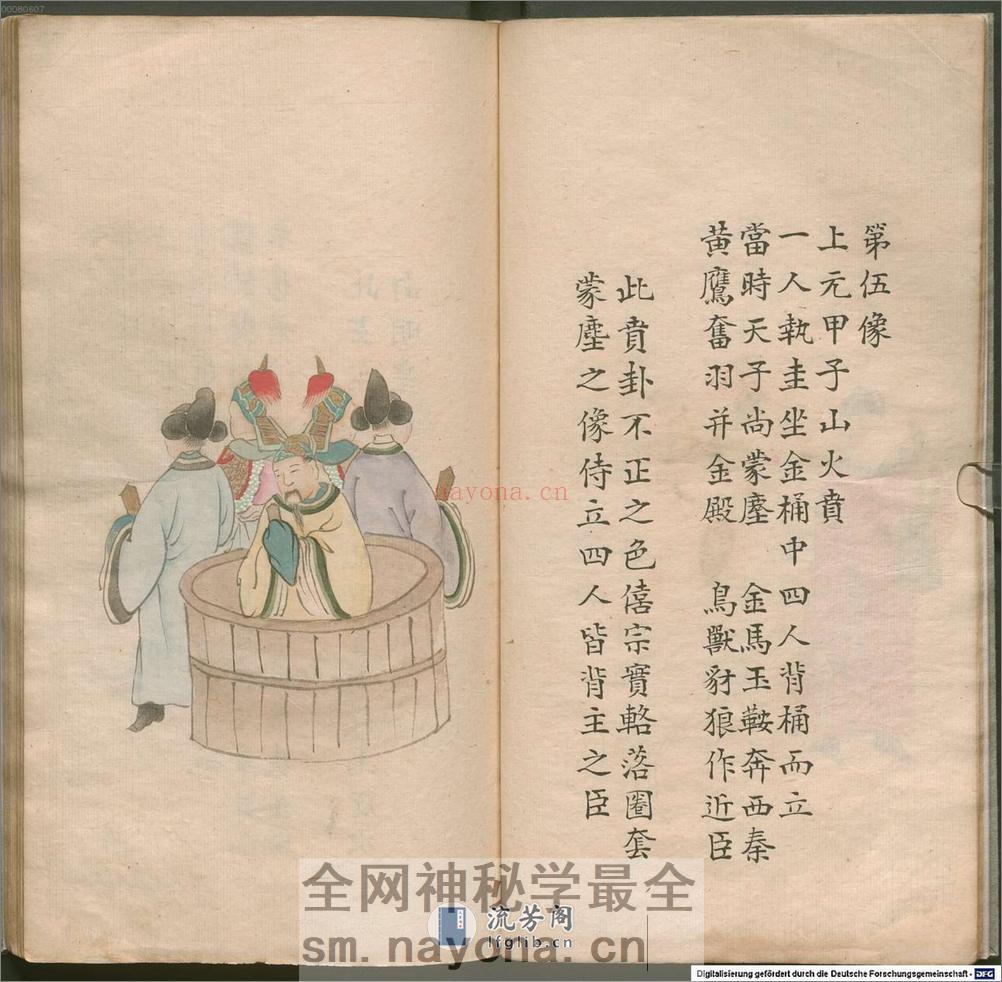 00080607
第伍像
上元甲子山火賁
一人執圭坐金桶中四人背桶而立
當時天子尚蒙塵 金馬玉鞍奔西秦
黃鷹奮羽并金殿 鳥獸豺狼作近臣
此賁卦不正之色僖宗實輅落圈套
蒙塵之像侍立四人皆背主之臣
nayona.cn
全网神秘学最全
流芳阁
lfglib.cn
sm.nayona.cn
Digitalisierung gefördert durch die Deutsche Forschungsgemeinschaft - DFG